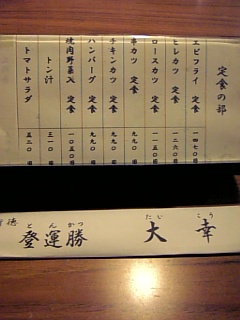 定食の部
エビフライ 定食 一四七〇円
ヒレカツ 定食 一二六〇円
ロースカツ 定食 一〇五〇円
串カツ 定食 九九〇円
チキンカツ 定食 九九〇円
ハンバーグ 定食 九九〇円
焼肉野菜入 定食 一〇五〇円
トン汁 三一〇円
トマトサラダ 五二〇円
とんかつ
登運勝
たいこう
大幸